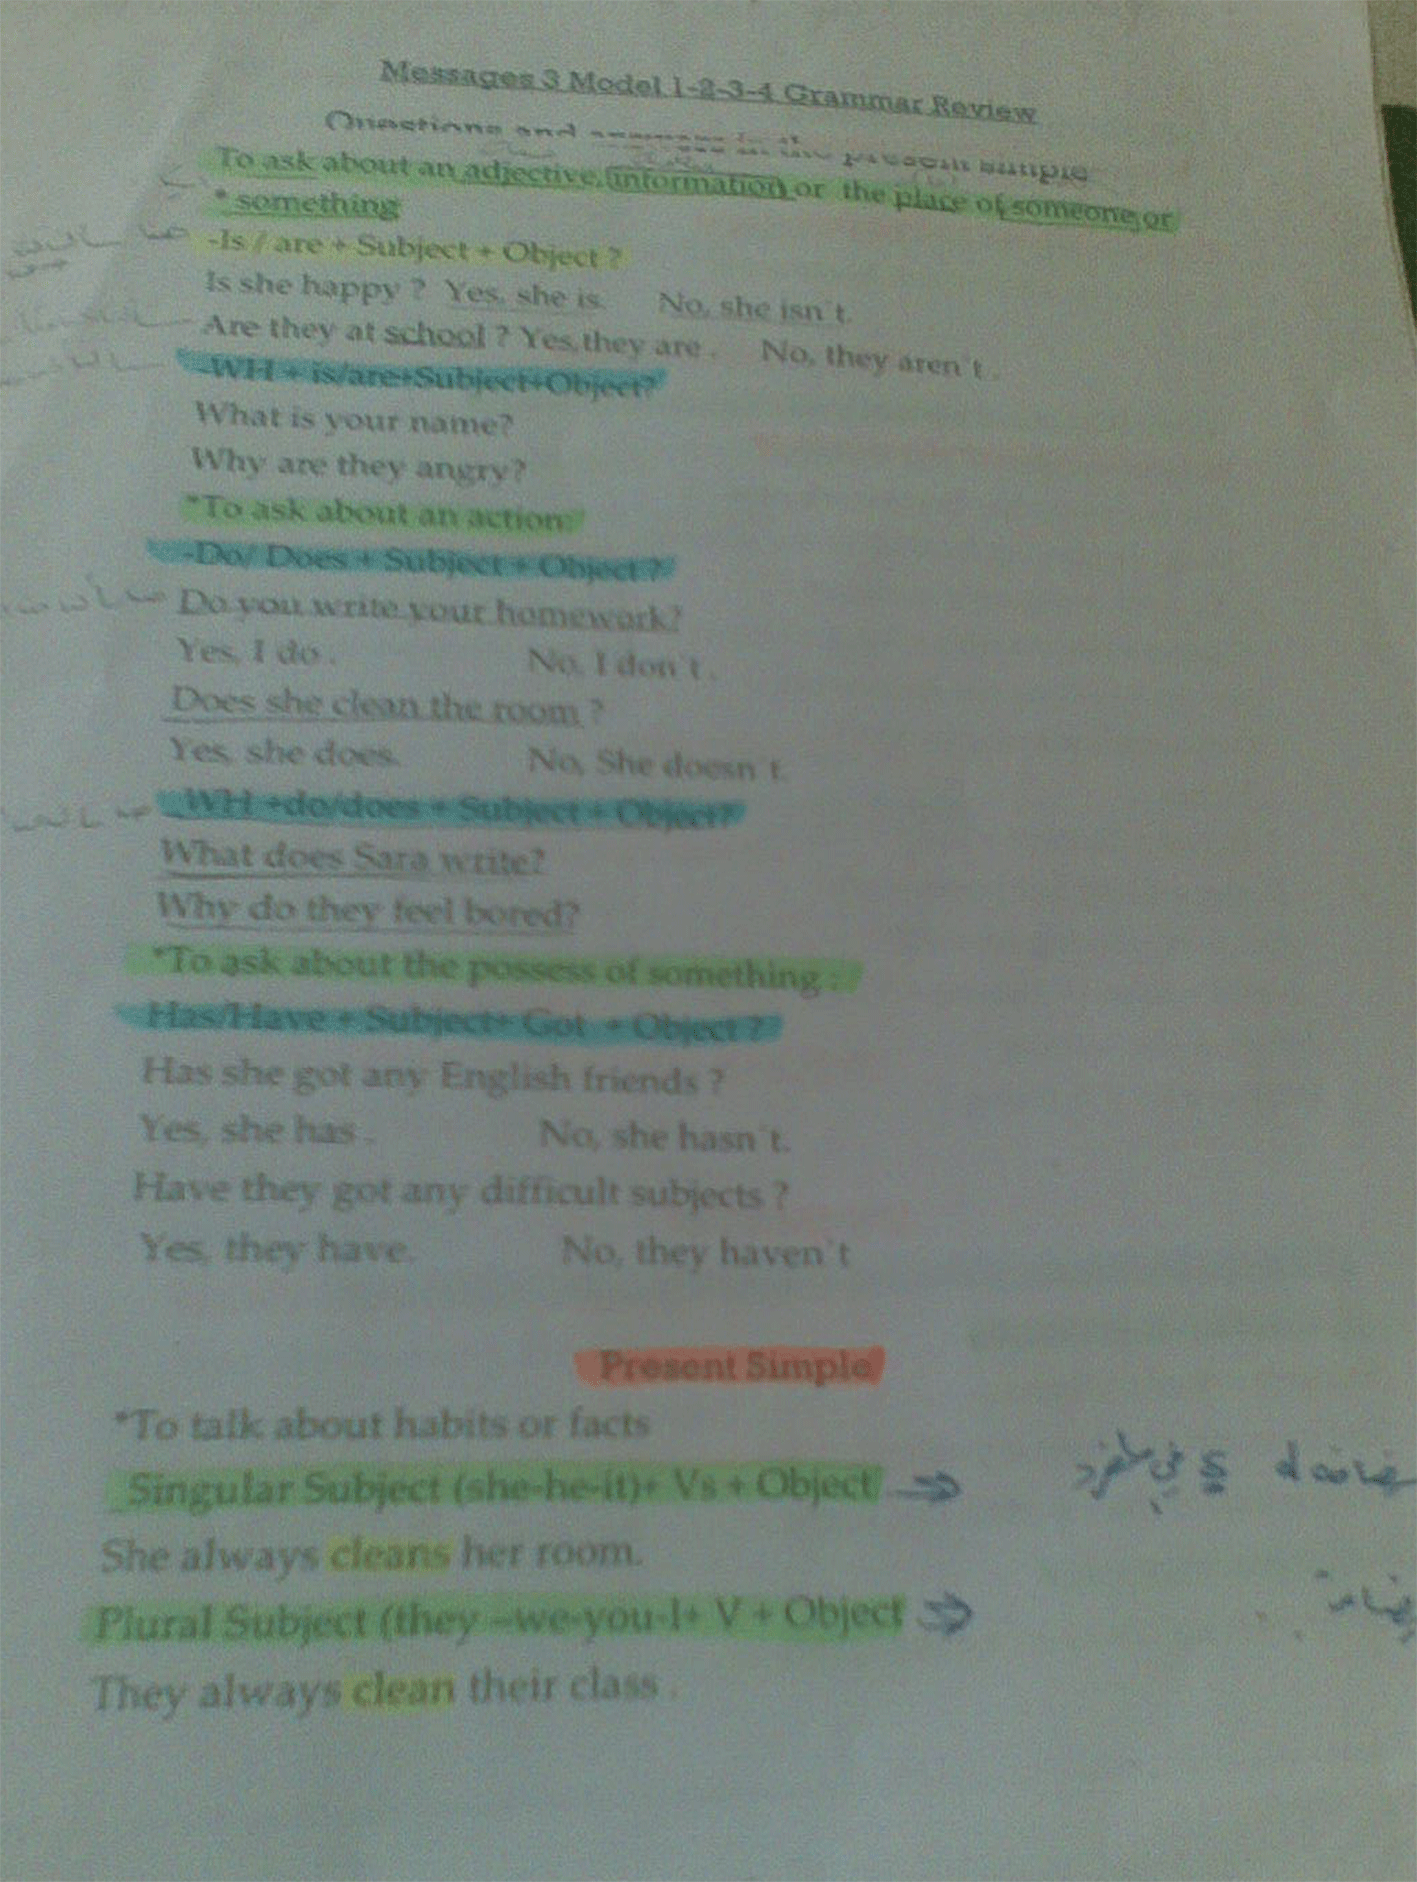 Messages 3 Model 1-2-3-4 Grammar Review
Questions and in the present simple
To ask about an adjective, information or the place of someone or
* something
-Is / are + Subject + Object ?
Is she happy ? Yes, she is. No, she isn´t.
Are they at school ? Yes,they are . No, they aren´t .
-WH + is/are+Subject+Object?
What is your name?
Why are they angry?
*To ask about an action:
-Do/ Does + Subject + Object ?
Do you write your homework?
Yes, I do . No, I don´t .
Does she clean the room ?
Yes, she does. No, She doesn´t.
WH +do/does + Subject + Object?
What does Sara write?
Why do they feel bored?
*To ask about the possess of something :
Has/Have + Subject+ Got + Object ?
Has she got any English friends ?
Yes, she has . No, she hasn´t.
Have they got any difficult subjects ?
Yes, they have. No, they haven´t
Present Simple
*To talk about habits or facts
Singular Subject (she-he-it)+ Vs + Object
She always cleans her room.
Plural Subject (they –we-you-I+ V + Object
They always clean their class .